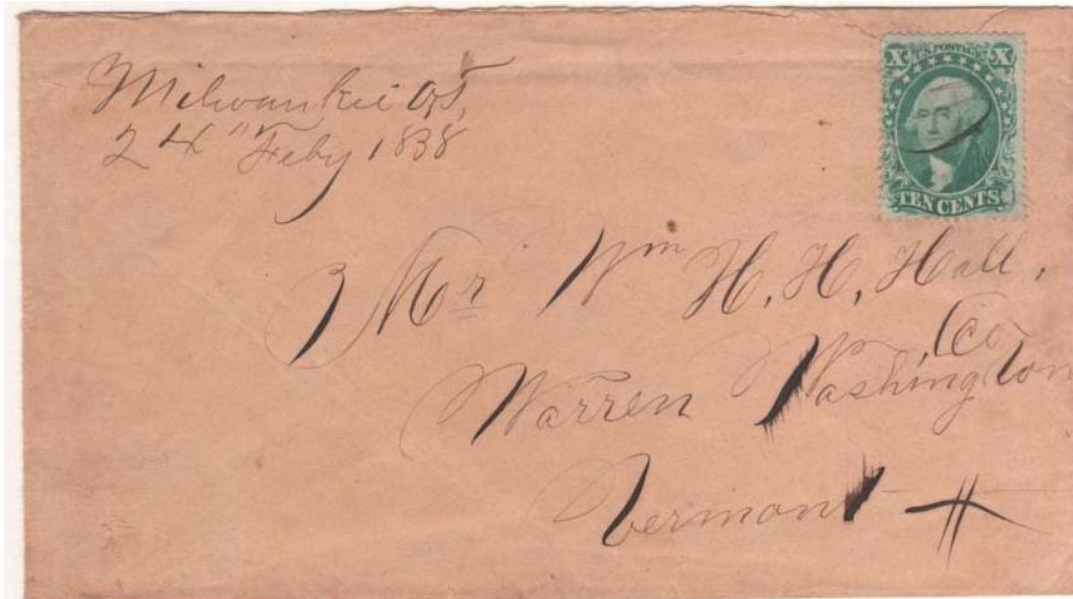 Milwaukie OT,
24" Feby 1838
X U.S. POSTAGE X
TEN CENTS.
Mr Wm H. H. Hall,
Warren Washington Co
Vermont